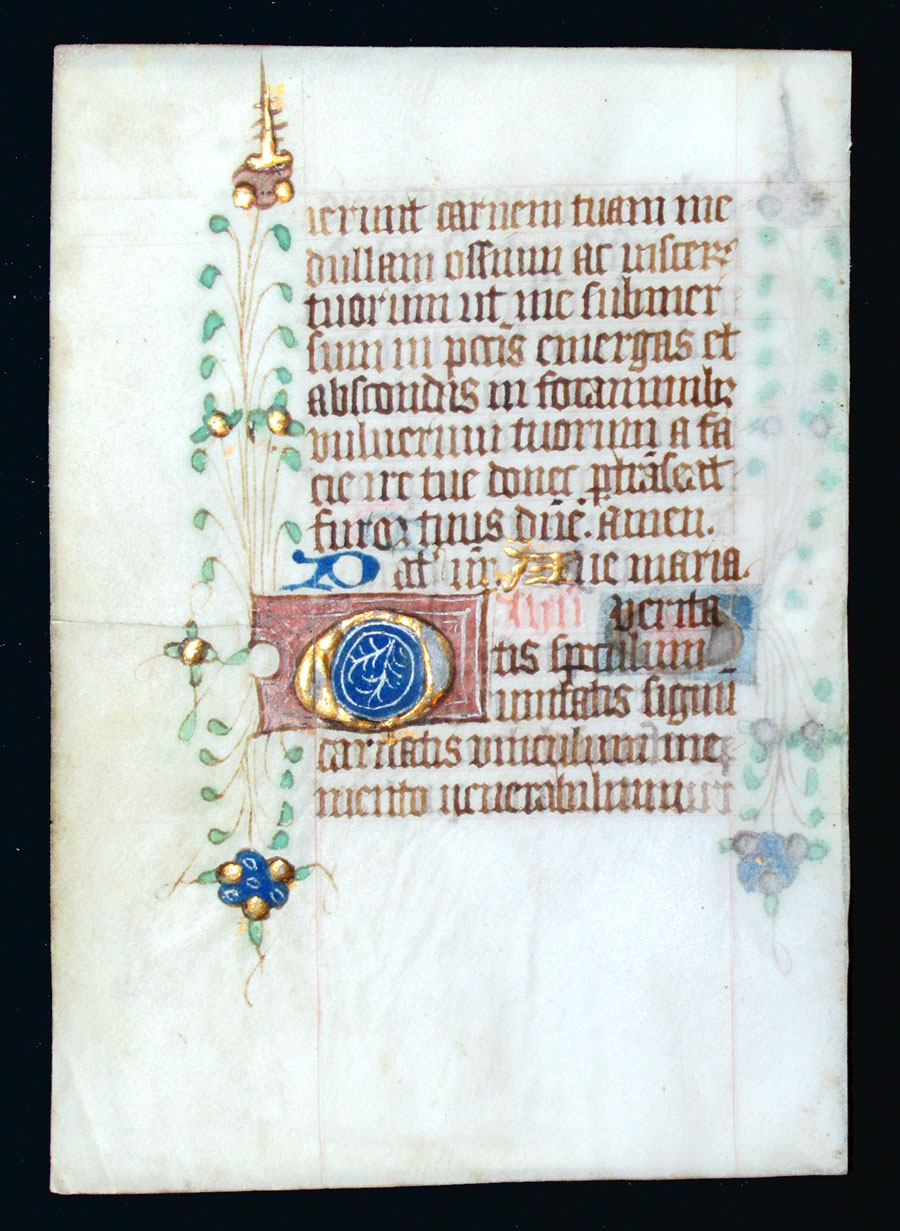 ierunt carnem tuam me
dullam ossium ac viscer
tuorum ut me submer
sum in pctīs emergas et
abscondas in foraminibꝫ
vulnerum tuorum a fa
cie ire tue donec ꝑtrāseat
furor tuus dn̄e. amen.
Pat nr̄. Aue maria
O verita
tis speculum
unitatis signū
caritatis vinculum me
mento venerabilium et